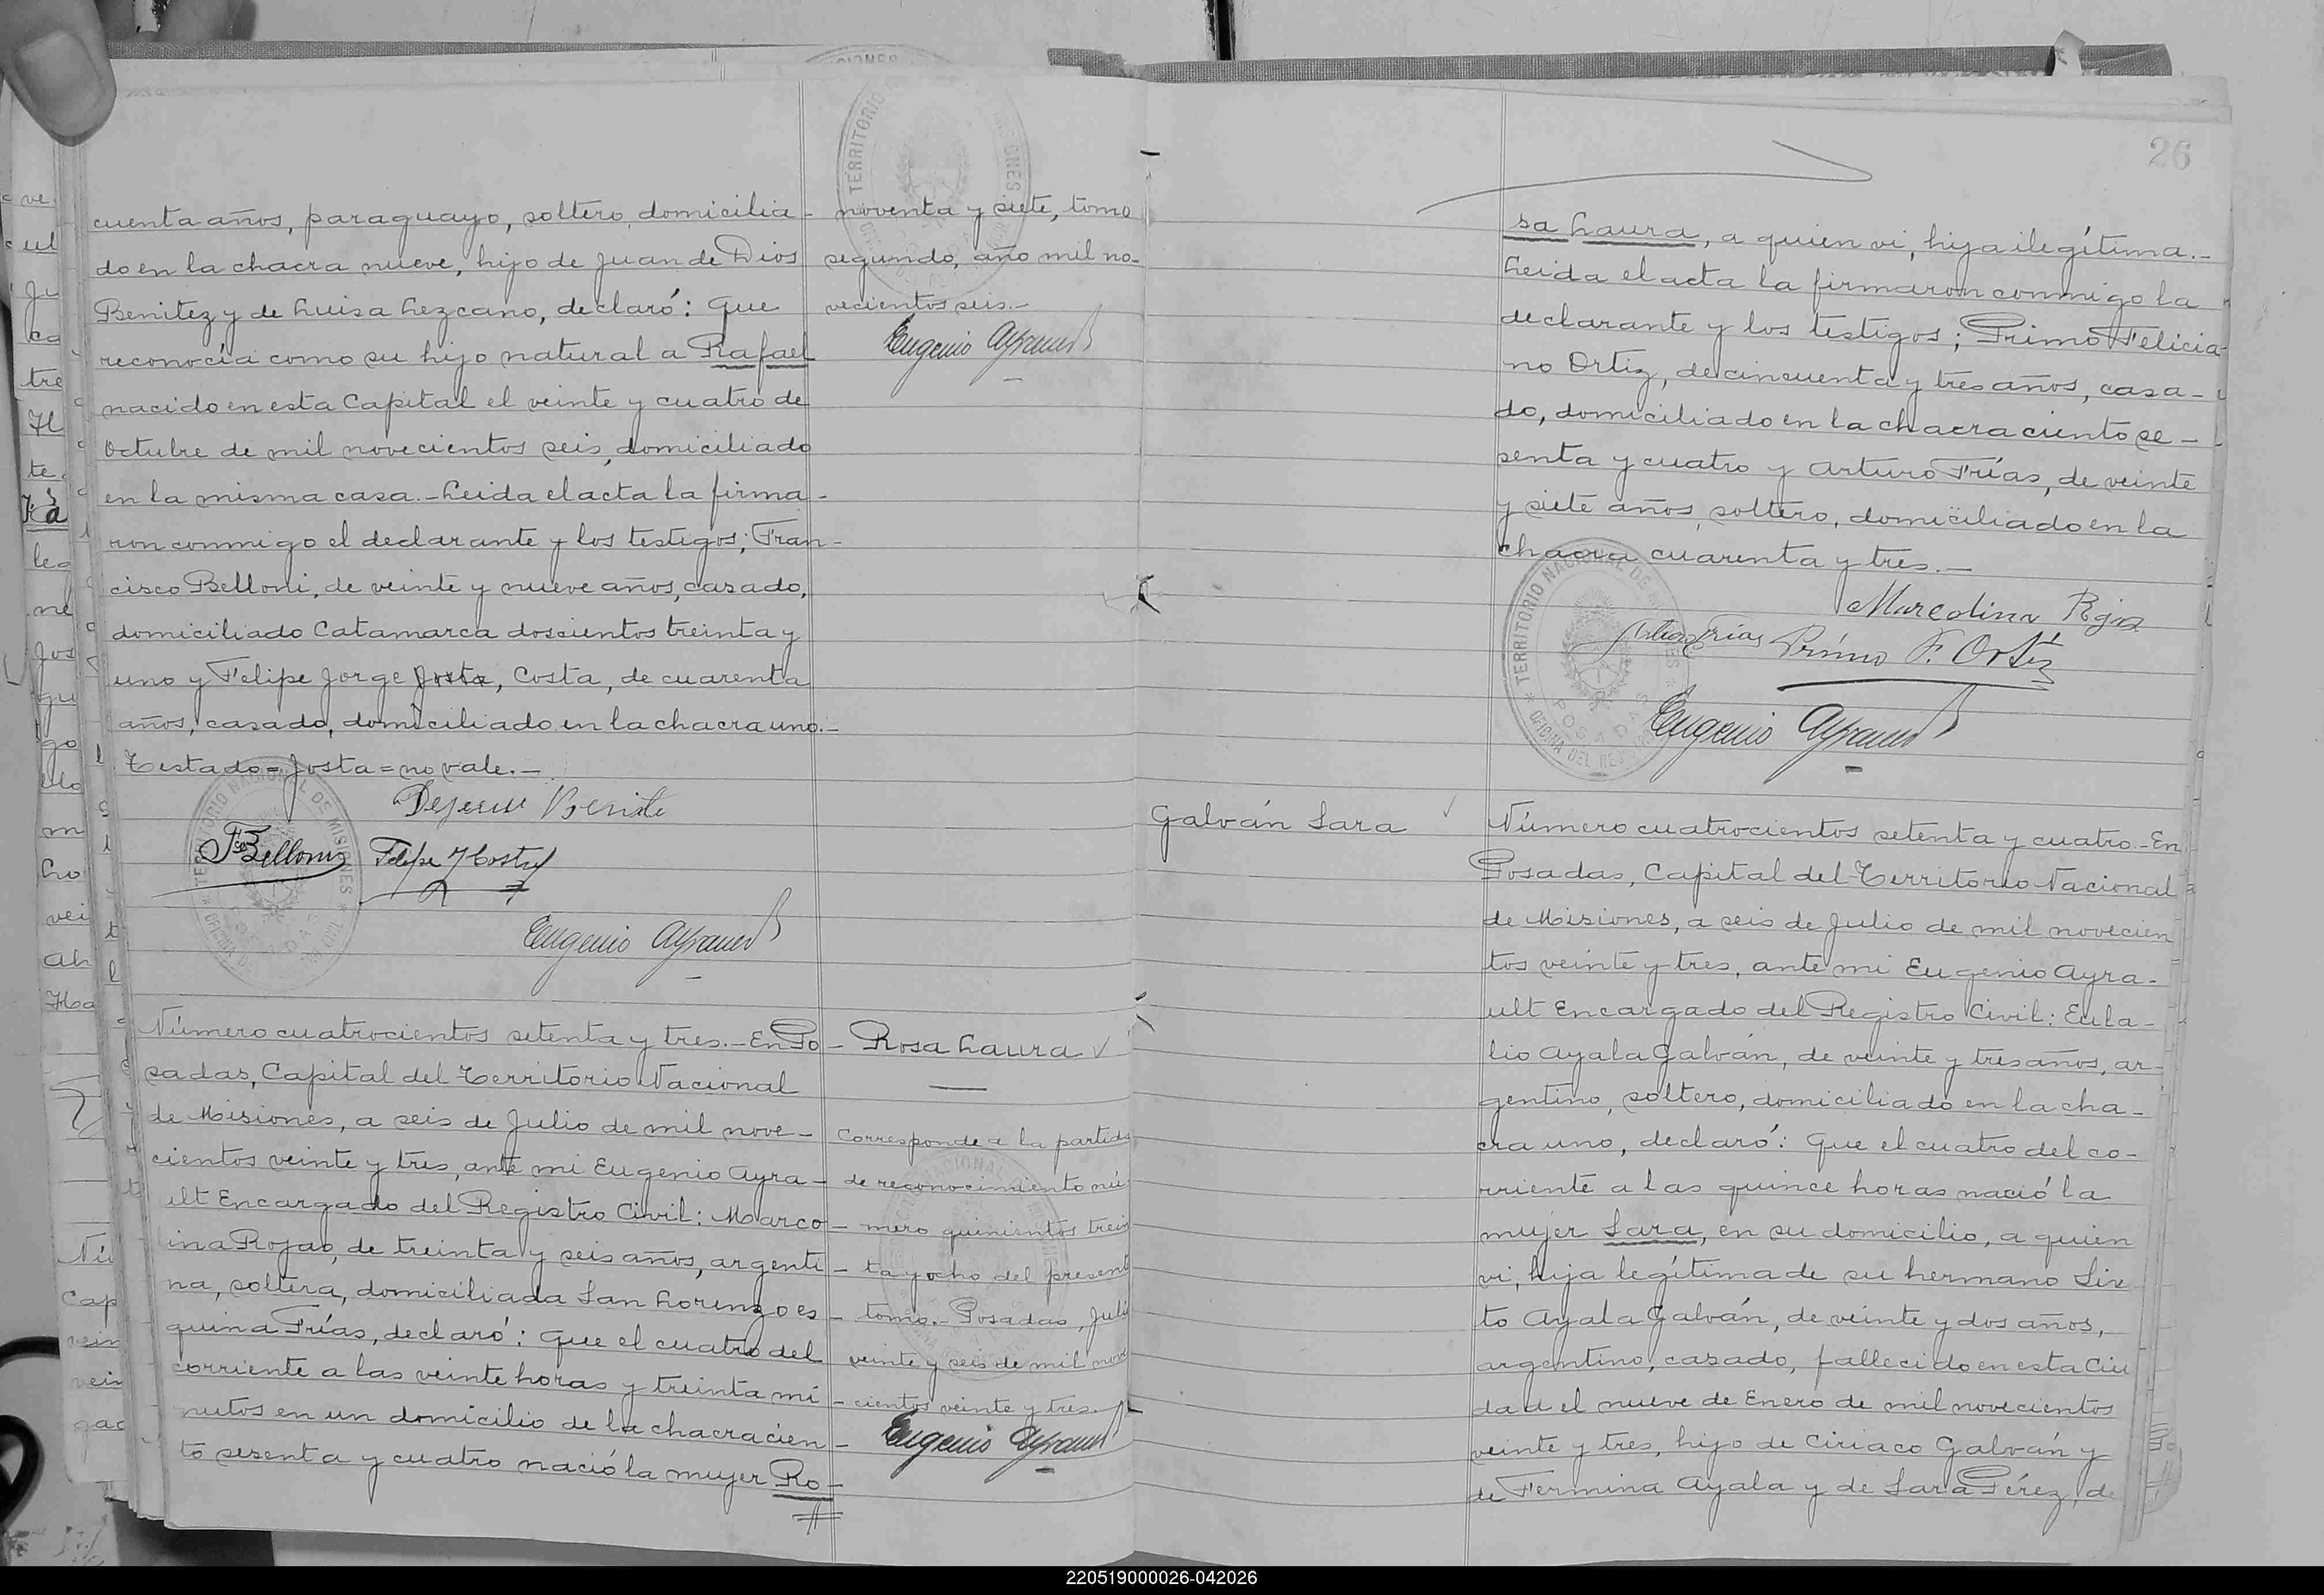 cuenta años, paraguayo, soltero, domicilia-
do en la chacra nueve, hijo de Juan de Dios
Benitez y de Luisa Lezcano, declaró: Que
reconocía como su hijo natural a Rafael
nacido en esta Capital el veinte y cuatro de
Octubre de mil novecientos seis, domiciliado
en la misma casa.- Leida el acta la firma-
ron conmigo el declarante y los testigos; Fran-
cisco Belloni, de veinte y nueve años, casado,
domiciliado Catamarca doscientos treinta y
uno y Felipe Jorge Josta, Costa, de cuarenta
años, casado, domiciliado en la chacra uno.-
Testado = Josta = no vale.-
Belloni
Eugenio Ayrault
noventa y siete, tomo
segundo, año mil no-
vecientos seis.-
Eugenio Ayrault
TERRITORIO NACIONAL DE MISIONES
Número cuatrocientos setenta y tres.- En Po-
sadas, Capital del Territorio Nacional
de Misiones, a seis de Julio de mil nove-
cientos veinte y tres, ante mi Eugenio Ayra-
ult Encargado del Registro Civil: Marco-
lina Rojas, de treinta y seis años, argenti-
na, soltera, domiciliada San Lorenzo es-
quina Frías, declaró: Que el cuatro del
corriente a las veinte horas y treinta mi-
nutos en un domicilio de la chacra cien-
to sesenta y cuatro nació la mujer Ro-
Rosa Laura
Corresponde a la partida
de reconocimiento nú
mero quinientos trein
ta y ocho del present
tomo.- Posadas, Juli
veinte y seis de mil nove
cientos veinte y tres.
Eugenio Ayrault
26
sa Laura, a quien vi, hija ilegítima.-
Leida el acta la firmaron conmigo la
declarante y los testigos; Primo Felicia-
no Ortiz, de cincuenta y tres años, casa-
do, domiciliado en la chacra ciento se-
senta y cuatro y Arturo Frías, de veinte
y siete años, soltero, domiciliado en la
chacra cuarenta y tres.-
Marcolina Rojas
Frías Primo F. Ortiz
Eugenio Ayrault
TERRITORIO NACIONAL DE MISIONES
POSADAS
Galván Sara
Número cuatrocientos setenta y cuatro.- En
Posadas, Capital del Territorio Nacional
de Misiones, a seis de Julio de mil novecien
tos veinte y tres, ante mi Eugenio Ayra-
ult Encargado del Registro Civil: Eula-
lio Ayala Galván, de veinte y tres años, ar-
gentino, soltero, domiciliado en la cha-
cra uno, declaró: Que el cuatro del co-
rriente a las quince horas nació la
mujer Sara, en su domicilio, a quien
vi, hija legítima de su hermano Six
to Ayala Galván, de veinte y dos años,
argentino, casado, fallecido en esta Ciu
dad el nueve de Enero de mil novecientos
veinte y tres, hijo de Ciriaco Galván y
de Fermina Ayala y de Sara Pérez, de
220519000026-042026